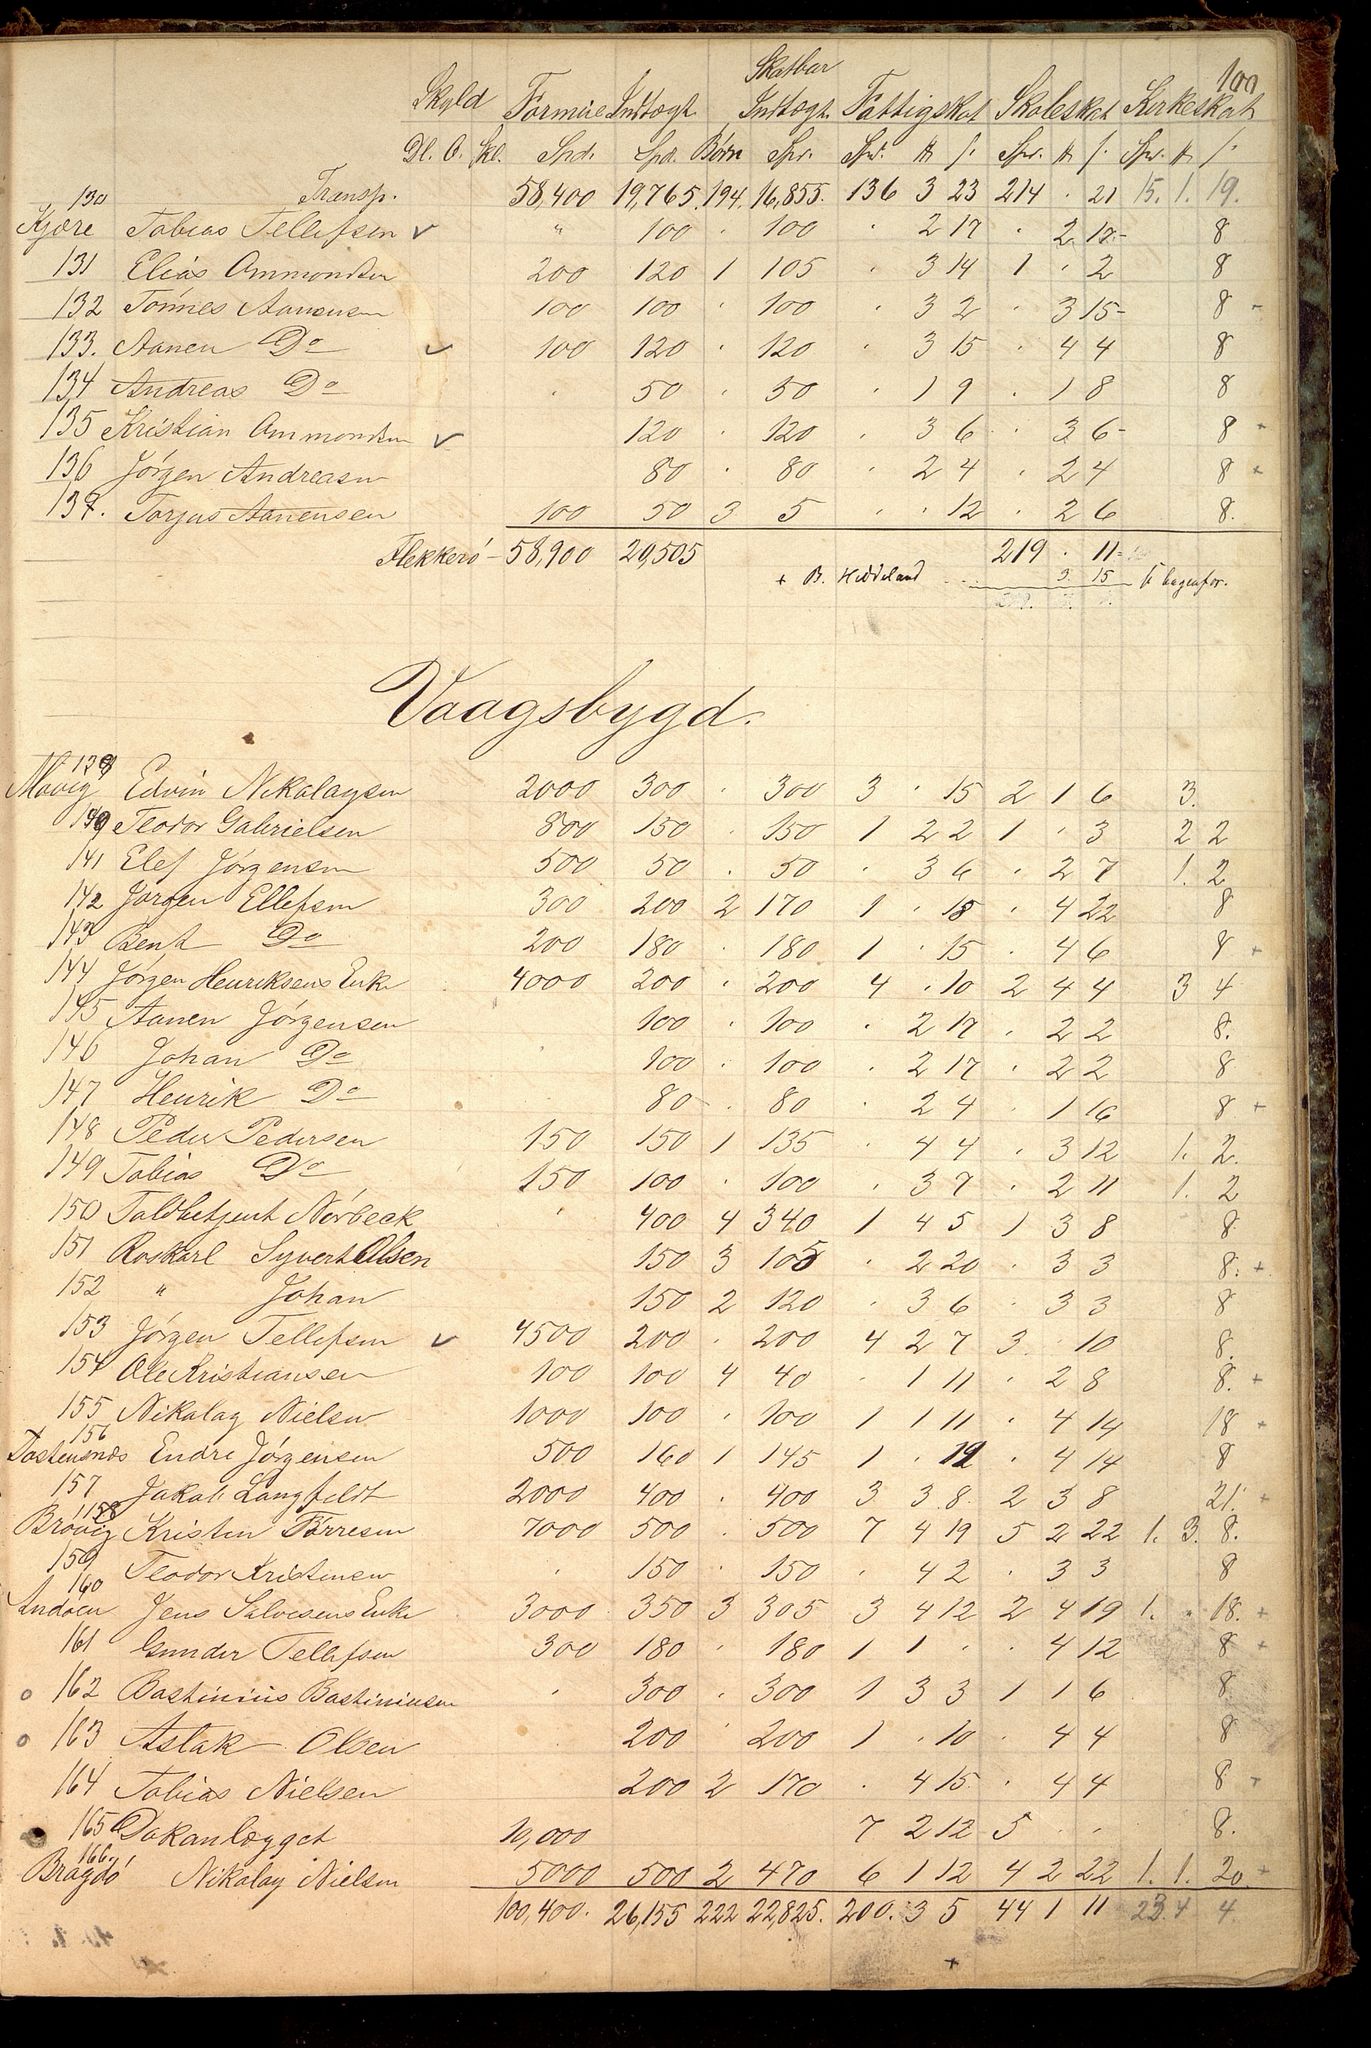 100
Skatbar
Skyld Formue Indtægt Indtægt Fattigskat Skoleskat Kirkeskat
Dl. O. Skl. Spd. Spd. Børn Spr. Spr. # /. Spr. # /. Spr. # /.
Transp. 58,400 19,765. 194. 16,855. 136 3 23 214 . 21 15. 1. 19.
130
Kjære Tobias Tellefsen v " 100 . 100 . 2 17 . 2 17- 8
131 Elias Ommondsen 200 120 1 105 . 3 14 1 . 2 8
132 Tønnes Aanensen 100 100 . 100 . 3 2 . 3 15- 8 -
133. Aanen Do v 100 120 . 120 . 3 15 . 4 4 8
134 Andreas Do . 50 . 50 . 1 9 . 1 8 8
135 Kristian Ommondsen v 120 . 120 . 3 6 . 3 6- 8 +
136 Jørgen Andreasen 80 . 80 . 2 4 . 2 4 8 +
137. Torjus Aanensen 100 50 3 5 . . 12 . 2 6 8.
Flekkerø - 58,900 20,505 219 . 11-
+ B. Hiddeland 3. 15 bagenfor.
Vaagsbygd.
139
Movig Edvin Nikolaysen 2000 300 . 300 3 . 15 2 1 6 3.
140 Teodor Gabrielsen 800 150 . 150 1 2 2 1 . 3 2 2
141 Elef Jørgensen 500 50 . 50 . 3 6 . 2 7 1. 2
142 Jørgen Ellefsen 300 200 2 170 1 . 18 . 4 22 8
143 Bent Do 200 180 . 180 1 . 15 . 4 6 8 +
144 Jørgen Henriksens Enke 4000 200 . 200 4 . 10 2 4 4 3 4
145 Aanen Jørgensen 100 . 100 . 2 17 . 2 2 8.
146 Johan Do 100 . 100 . 2 17 . 2 2 8
147 Henrik Do 80 . 80 . 2 4 . 1 16 8 +
148 Peder Pedersen 150 150 1 135 . 4 4 . 3 12 1. 2.
149 Tobias Do 150 100 . 100 . 3 7 . 2 11 1. 2
150 Toldbetjent Nørbeck . 400 4 340 1 4 5 1 3 8 8
151 Roskarl Syvert Olsen 150 3 105 . 2 20 . 3 3 8. +
152 " Johan 150 2 120 . 3 6 . 3 3 8
153 Jørgen Tellefsen v 4500 200 . 200 4 2 7 3. . 10 8.
154 Ole Kristiansen 100 100 4 40 . 1 11 . 2 8 8. +
155 Nikolay Nielsen 1000 100 . 100 1 1 11 . 4 14 18 +
156
Tostensnæs Endre Jørgensen 500 160 1 145 1 . 12 . 4 14 8
157 Jakob Langfeldt 2000 400 . 400 3 3 8. 2 3 8 21. +
158
Brøvig Kristen Tørresen 7000 500 . 500 7 4 19 5 2 22 1. 3. 8.
159 Teodor Kristensen . 150 . 150 . 4 2 . 3 3 8
160
Andøen Jens Salvesens Enke 3000 350 3 305 3 4 12 2 4 19 1. . 18. +
161 Gunder Tellefsen 300 180 . 180 1 1 . . 4 12 8 +
o 162 Bastinius Bastiniusen . 300 . 300 1 3 3 1 1 6 8
o 163 Aslak Olsen . 200 . 200 1 . 10 . 4 4 8
164 Tobias Nielsen 200 2 170 . 4 15 . 4 4 8 +
165 Dokanlægget 10,000 7 2 12 5 . . 8.
166.
Bragdø Nikolay Nielsen 5000 500 2 470 6 1 12 4 2 22 1. 1. 20. +
100,400. 26,155 222 22,825. 200. 3 5 44 1 11 23. 4 4
+